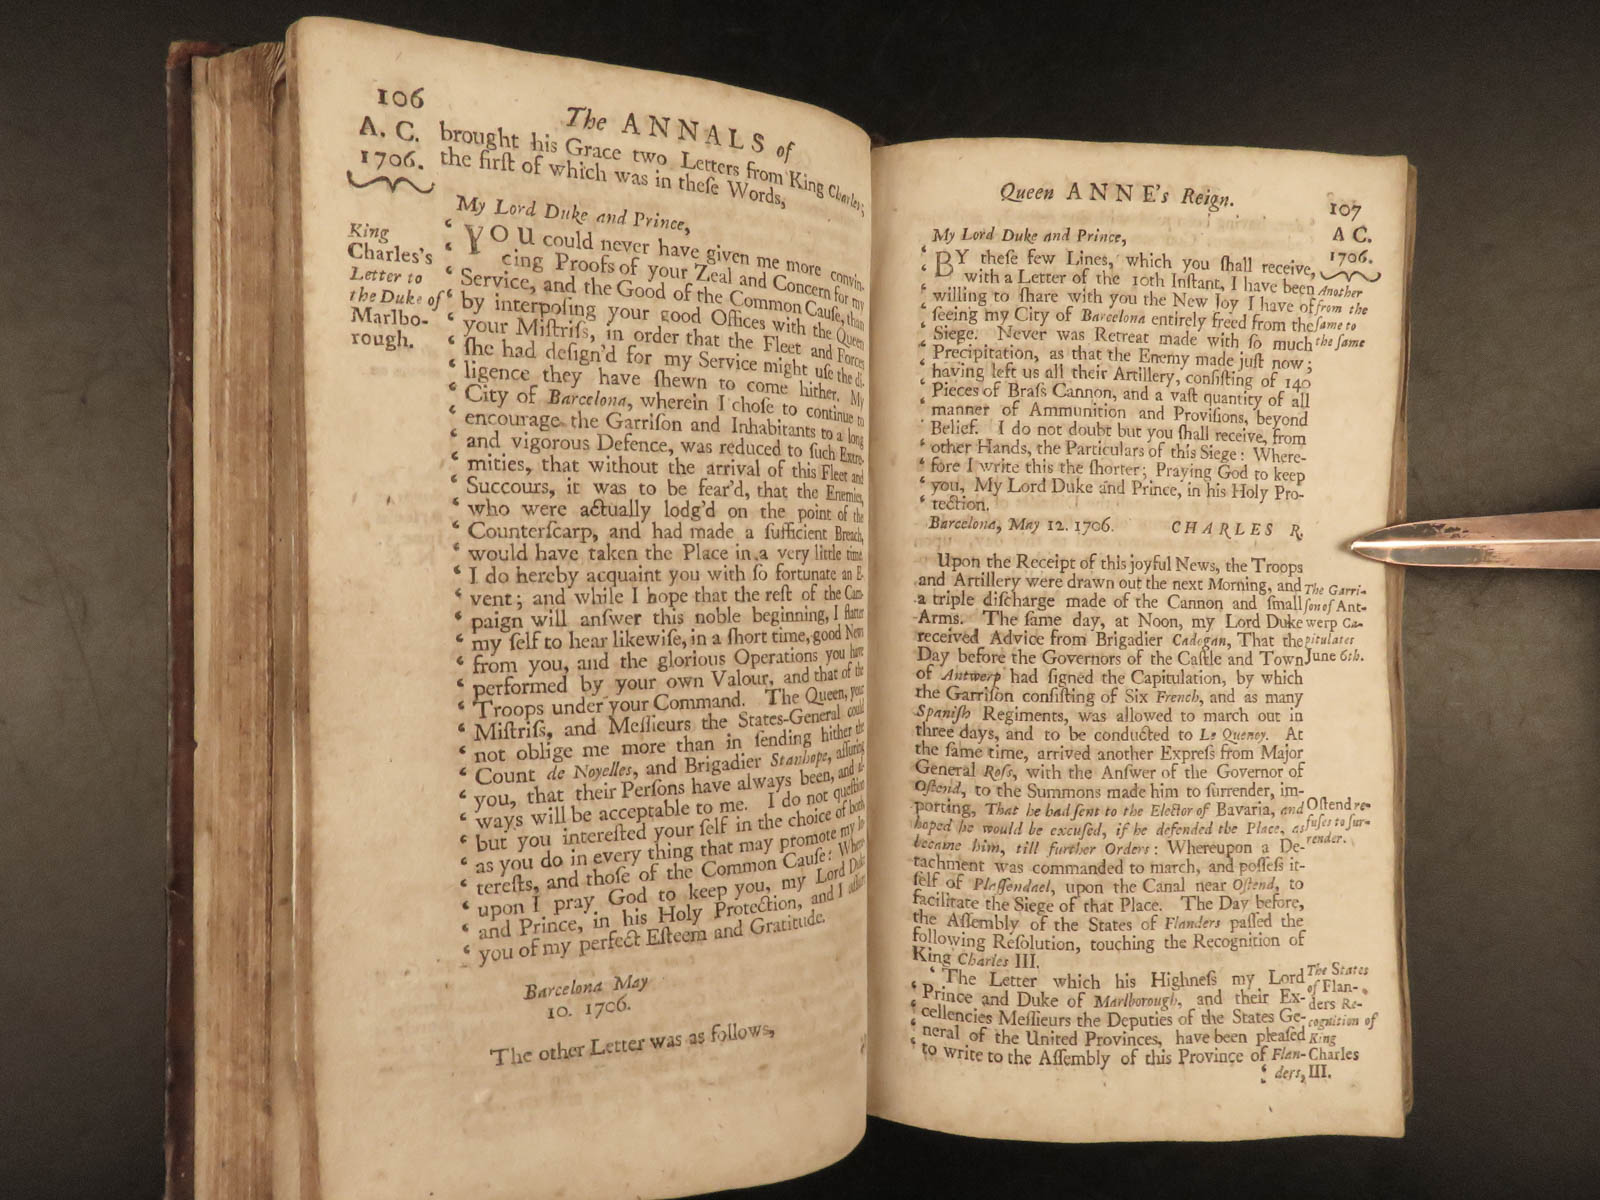 106
The ANNALS of
A. C.
1706.
brought his Grace two Letters from King Charles;
the first of which was in these Words,
My Lord Duke and Prince,
King
Charles's
Letter to
the Duke of
Marlbo-
rough.
‘ YOU could never have given me more convin-
‘ cing Proofs of your Zeal and Concern for my
‘ Service, and the Good of the Common Cause, than
‘ by interposing your good Offices with the Queen
‘ your Mistriss, in order that the Fleet and Forces
‘ she had design'd for my Service might use the di-
‘ ligence they have shewn to come hither. My
‘ City of Barcelona, wherein I chose to continue to
‘ encourage the Garrison and Inhabitants to a long
‘ and vigorous Defence, was reduced to such Extre-
‘ mities, that without the arrival of this Fleet and
‘ Succours, it was to be fear'd, that the Enemies,
‘ who were actually lodg'd on the point of the
‘ Counterscarp, and had made a sufficient Breach,
‘ would have taken the Place in a very little time.
‘ I do hereby acquaint you with so fortunate an E-
‘ vent; and while I hope that the rest of the Cam-
‘ paign will answer this noble beginning, I flatter
‘ my self to hear likewise, in a short time, good News
‘ from you, and the glorious Operations you have
‘ performed by your own Valour, and that of the
‘ Troops under your Command. The Queen, your
‘ Mistriss, and Messieurs the States-General could
‘ not oblige me more than in sending hither the
‘ Count de Noyelles, and Brigadier Stanhope, assuring
‘ you, that their Persons have always been, and al-
‘ ways will be acceptable to me. I do not question
‘ but you interested your self in the choice of both,
‘ as you do in every thing that may promote my In-
‘ terests, and those of the Common Cause: Where-
‘ upon I pray God to keep you, my Lord Duke
‘ and Prince, in his Holy Protection, and I assure
‘ you of my perfect Esteem and Gratitude.
Barcelona May
10. 1706.
The other Letter was as follows,
Queen ANNE's Reign.
107
A C.
1706.
My Lord Duke and Prince,
‘ BY these few Lines, which you shall receive,
‘ with a Letter of the 10th Instant, I have been
‘ willing to share with you the New Joy I have of
‘ seeing my City of Barcelona entirely freed from the
‘ Siege. Never was Retreat made with so much
‘ Precipitation, as that the Enemy made just now;
‘ having left us all their Artillery, consisting of 140
‘ Pieces of Brass Cannon, and a vast quantity of all
‘ manner of Ammunition and Provisions, beyond
‘ Belief. I do not doubt but you shall receive, from
‘ other Hands, the Particulars of this Siege: Where-
‘ fore I write this the shorter; Praying God to keep
‘ you, My Lord Duke and Prince, in his Holy Pro-
‘ tection.
Another
from the
same to
the same
Barcelona, May 12. 1706. CHARLES R.
Upon the Receipt of this joyful News, the Troops
and Artillery were drawn out the next Morning, and
a triple discharge made of the Cannon and small
Arms. The same day, at Noon, my Lord Duke
received Advice from Brigadier Cadogan, That the
Day before the Governors of the Castle and Town
of Antwerp had signed the Capitulation, by which
the Garrison consisting of Six French, and as many
Spanish Regiments, was allowed to march out in
three days, and to be conducted to Le Quenoy. At
the same time, arrived another Express from Major
General Ross, with the Answer of the Governor of
Ostend, to the Summons made him to surrender, im-
porting, That he had sent to the Elector of Bavaria, and
hoped he would be excused, if he defended the Place, as
became him, till further Orders: Whereupon a De-
tachment was commanded to march, and possess it-
self of Plassendael, upon the Canal near Ostend, to
facilitate the Siege of that Place. The Day before,
the Assembly of the States of Flanders passed the
following Resolution, touching the Recognition of
King Charles III.
The Garri-
son of Ant-
werp Ca-
pitulates
June 6th.
Ostend re-
fuses to sur-
render.
‘ The Letter which his Highness my Lord
‘ Prince and Duke of Marlborough, and their Ex-
‘ cellencies Messieurs the Deputies of the States Ge-
‘ neral of the United Provinces, have been pleased
‘ to write to the Assembly of this Province of Flan-
‘ ders,
The States
of Flan-
ders Re-
cognition of
King
Charles
III.